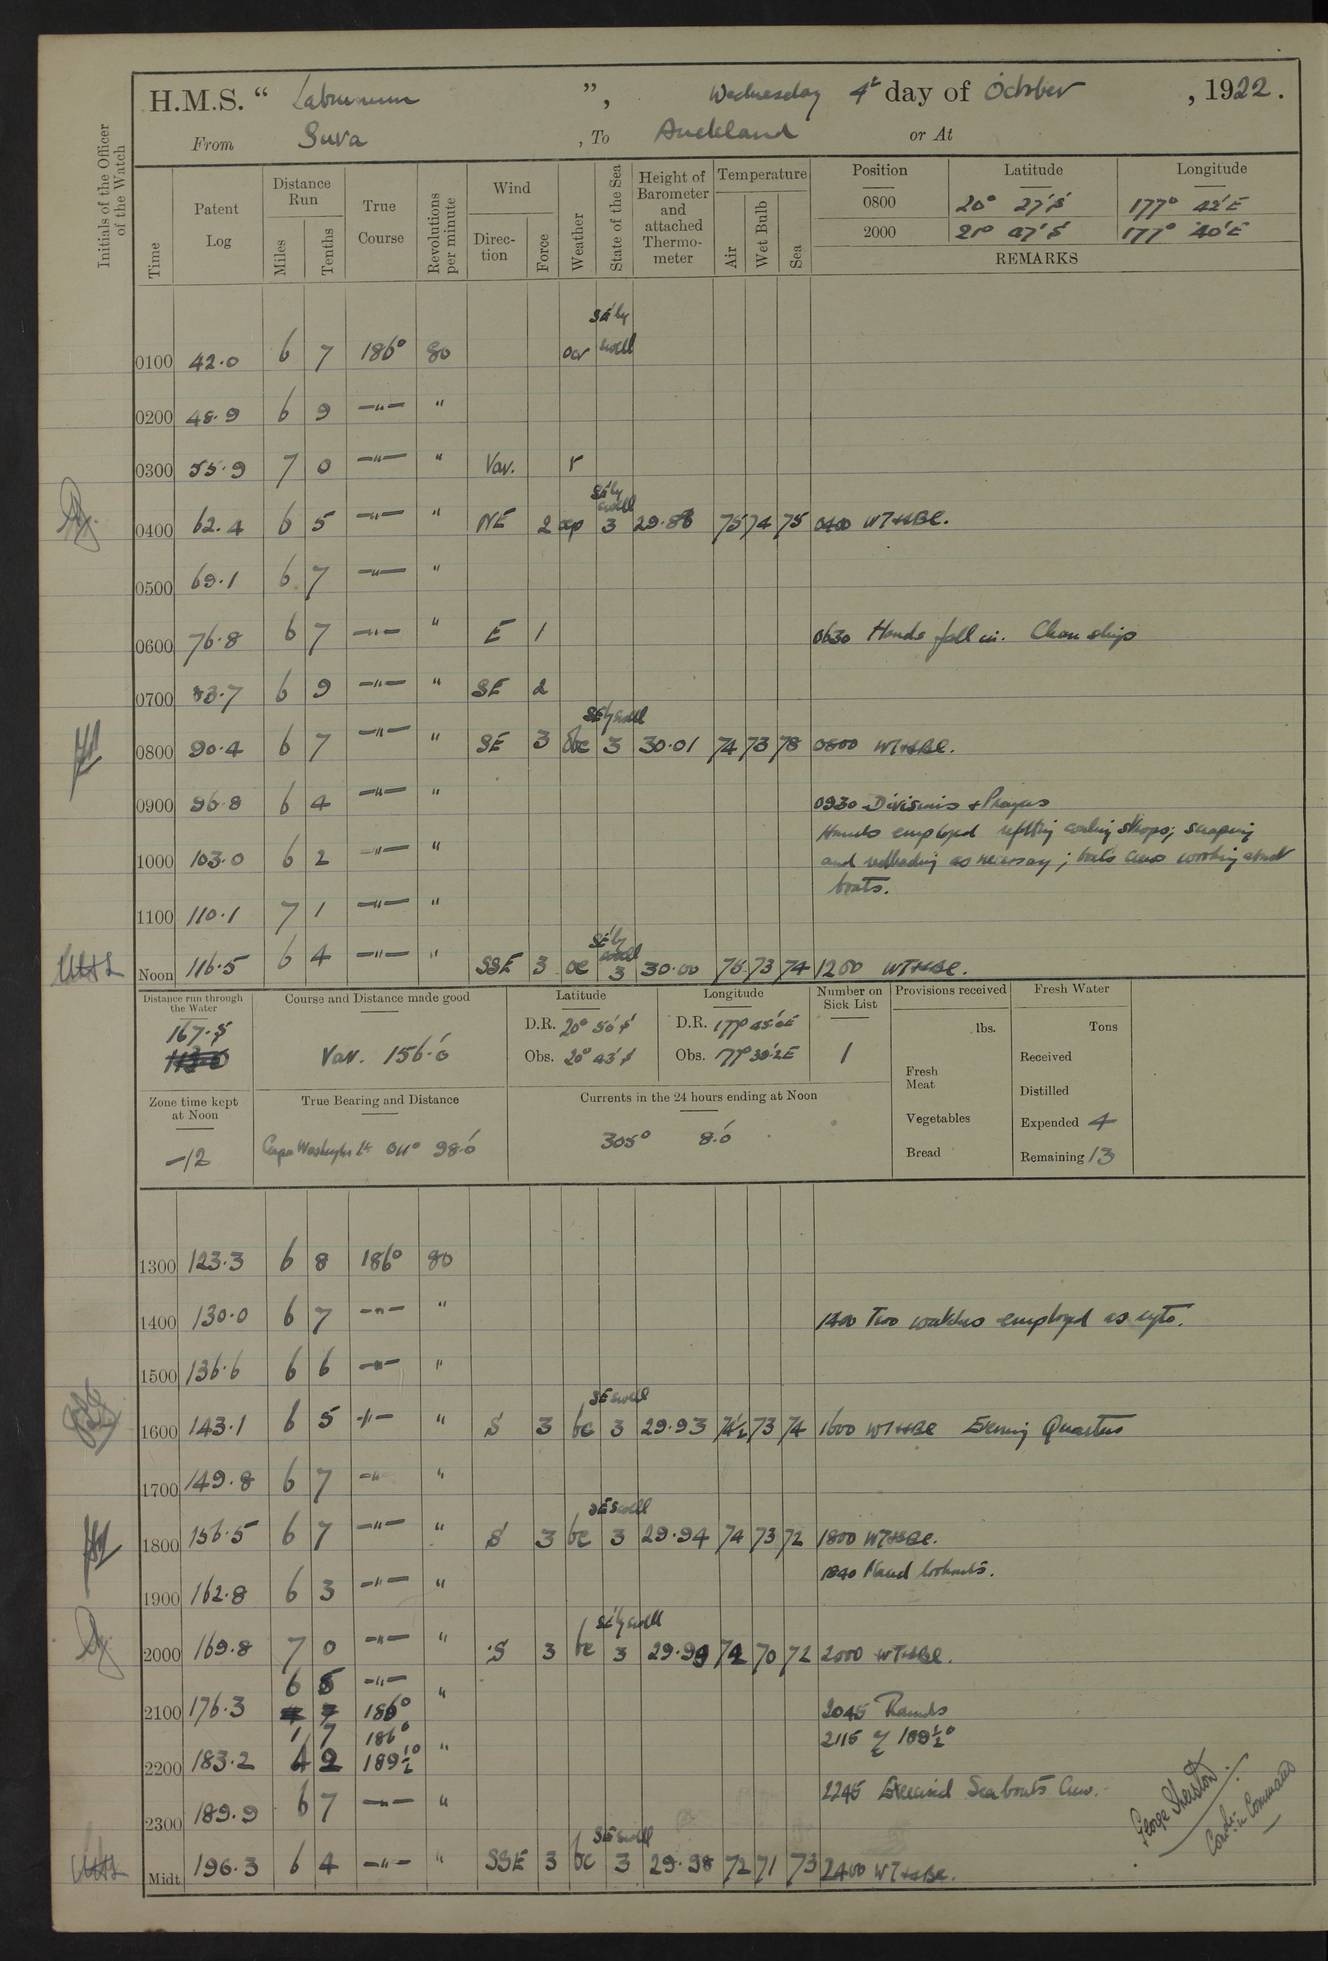 H.M.S. “ Laburnum ”, Wednesday 4th day of October , 1922.
From Suva , To Auckland or At
Initials of the Officer of the Watch
Time
Patent Log
Distance Run
Miles
Tenths
True Course
Revolutions per minute
Wind
Direction
Force
Weather
State of the Sea
Height of Barometer and attached Thermometer
Temperature
Air
Wet Bulb
Sea
Position Latitude Longitude
0800 20° 27'S 177° 42'E
2000 21° 47'S 177° 40'E
REMARKS
SE'ly
0100 42.0 6 7 186° 80 swell
0200 48.9 6 9 —"— "
0300 55.9 7 0 —"— " Var. r
SE'ly swell
0400 62.4 6 5 —"— " NE 2 3 29.88 75 74 75 0400 WT+BC.
0500 69.1 6 7 —"— "
0600 76.8 6 7 —"— " E 1 0630 Hands fall in. Clean ship
0700 83.7 6 9 —"— " SE 2
SE'ly swell
0800 90.4 6 7 —"— " SE 3 bc 3 30.01 74 73 78 0800 WT+BC.
0900 96.8 6 4 —"— " 0930 Divisions + Prayers
Hands employed refitting coaling strops; scraping
1000 103.0 6 2 —"— " and redleading as necessary; boats crews working about
boats.
1100 110.1 7 1 —"— "
SE'ly swell
Noon 116.5 6 4 —"— " SSE 3 bc 3 30.00 75 73 74 1200 WT+BC.
Distance run through the Water
167.5
Course and Distance made good
Var. 156.0'
Latitude
D.R. 20° 50'S
Obs. 20° 43'S
Longitude
D.R. 177° 45.0'E
Obs. 177° 38.2'E
Number on Sick List
1
Provisions received
lbs.
Fresh Meat
Vegetables
Bread
Fresh Water
Tons
Received
Distilled
Expended 4
Remaining 13
Zone time kept at Noon
-12
True Bearing and Distance
Cape Washington Lt 011° 98.0'
Currents in the 24 hours ending at Noon
305° 8.0'
1300 123.3 6 8 186° 80
1400 130.0 6 7 —"— " 1400 Two watches employed as reqto.
1500 136.6 6 6 —"— "
SE swell
1600 143.1 6 5 —"— " S 3 bc 3 29.93 74½ 73 74 1600 WT+BC Evening Quarters
1700 149.8 6 7 —"— "
SE swell
1800 156.5 6 7 —"— " S 3 bc 3 29.94 74 73 72 1800 WT+BC.
1840 Placed lookouts.
1900 162.8 6 3 —"— "
SE'ly swell
2000 169.8 7 0 —"— " S 3 bc 3 29.99 72 70 72 2000 WT+BC.
6 5 —"—
2100 176.3 186° " 2045 Rounds
1 7 186° 2115 a/c 189½°
2200 183.2 189½° "
2245 Exercised Seaboats Crew.
2300 189.9 6 7 —"— "
SE swell
Midt. 196.3 6 4 —"— " SSE 3 bc 3 29.98 72 71 73 2400 WT+BC.
George Sherston
Comdr. in Command